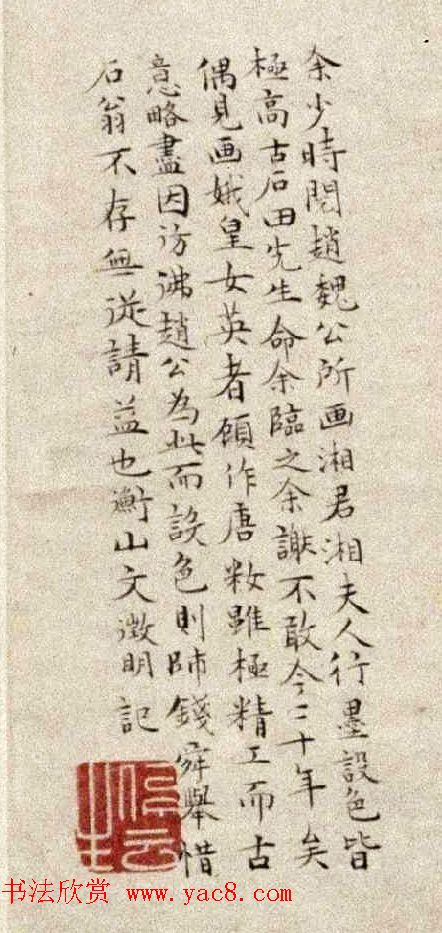 余少時閱趙魏公所画湘君湘夫人行墨設色皆
極高古石田先生命余臨之余謝不敢今二十年矣
偶見画娥皇女英者顧作唐妝雖極精工而古
意略盡因彷彿趙公為此而設色則師錢舜舉惜
石翁不存無從請益也衡山文徵明記
书法欣赏 www.yac8.com